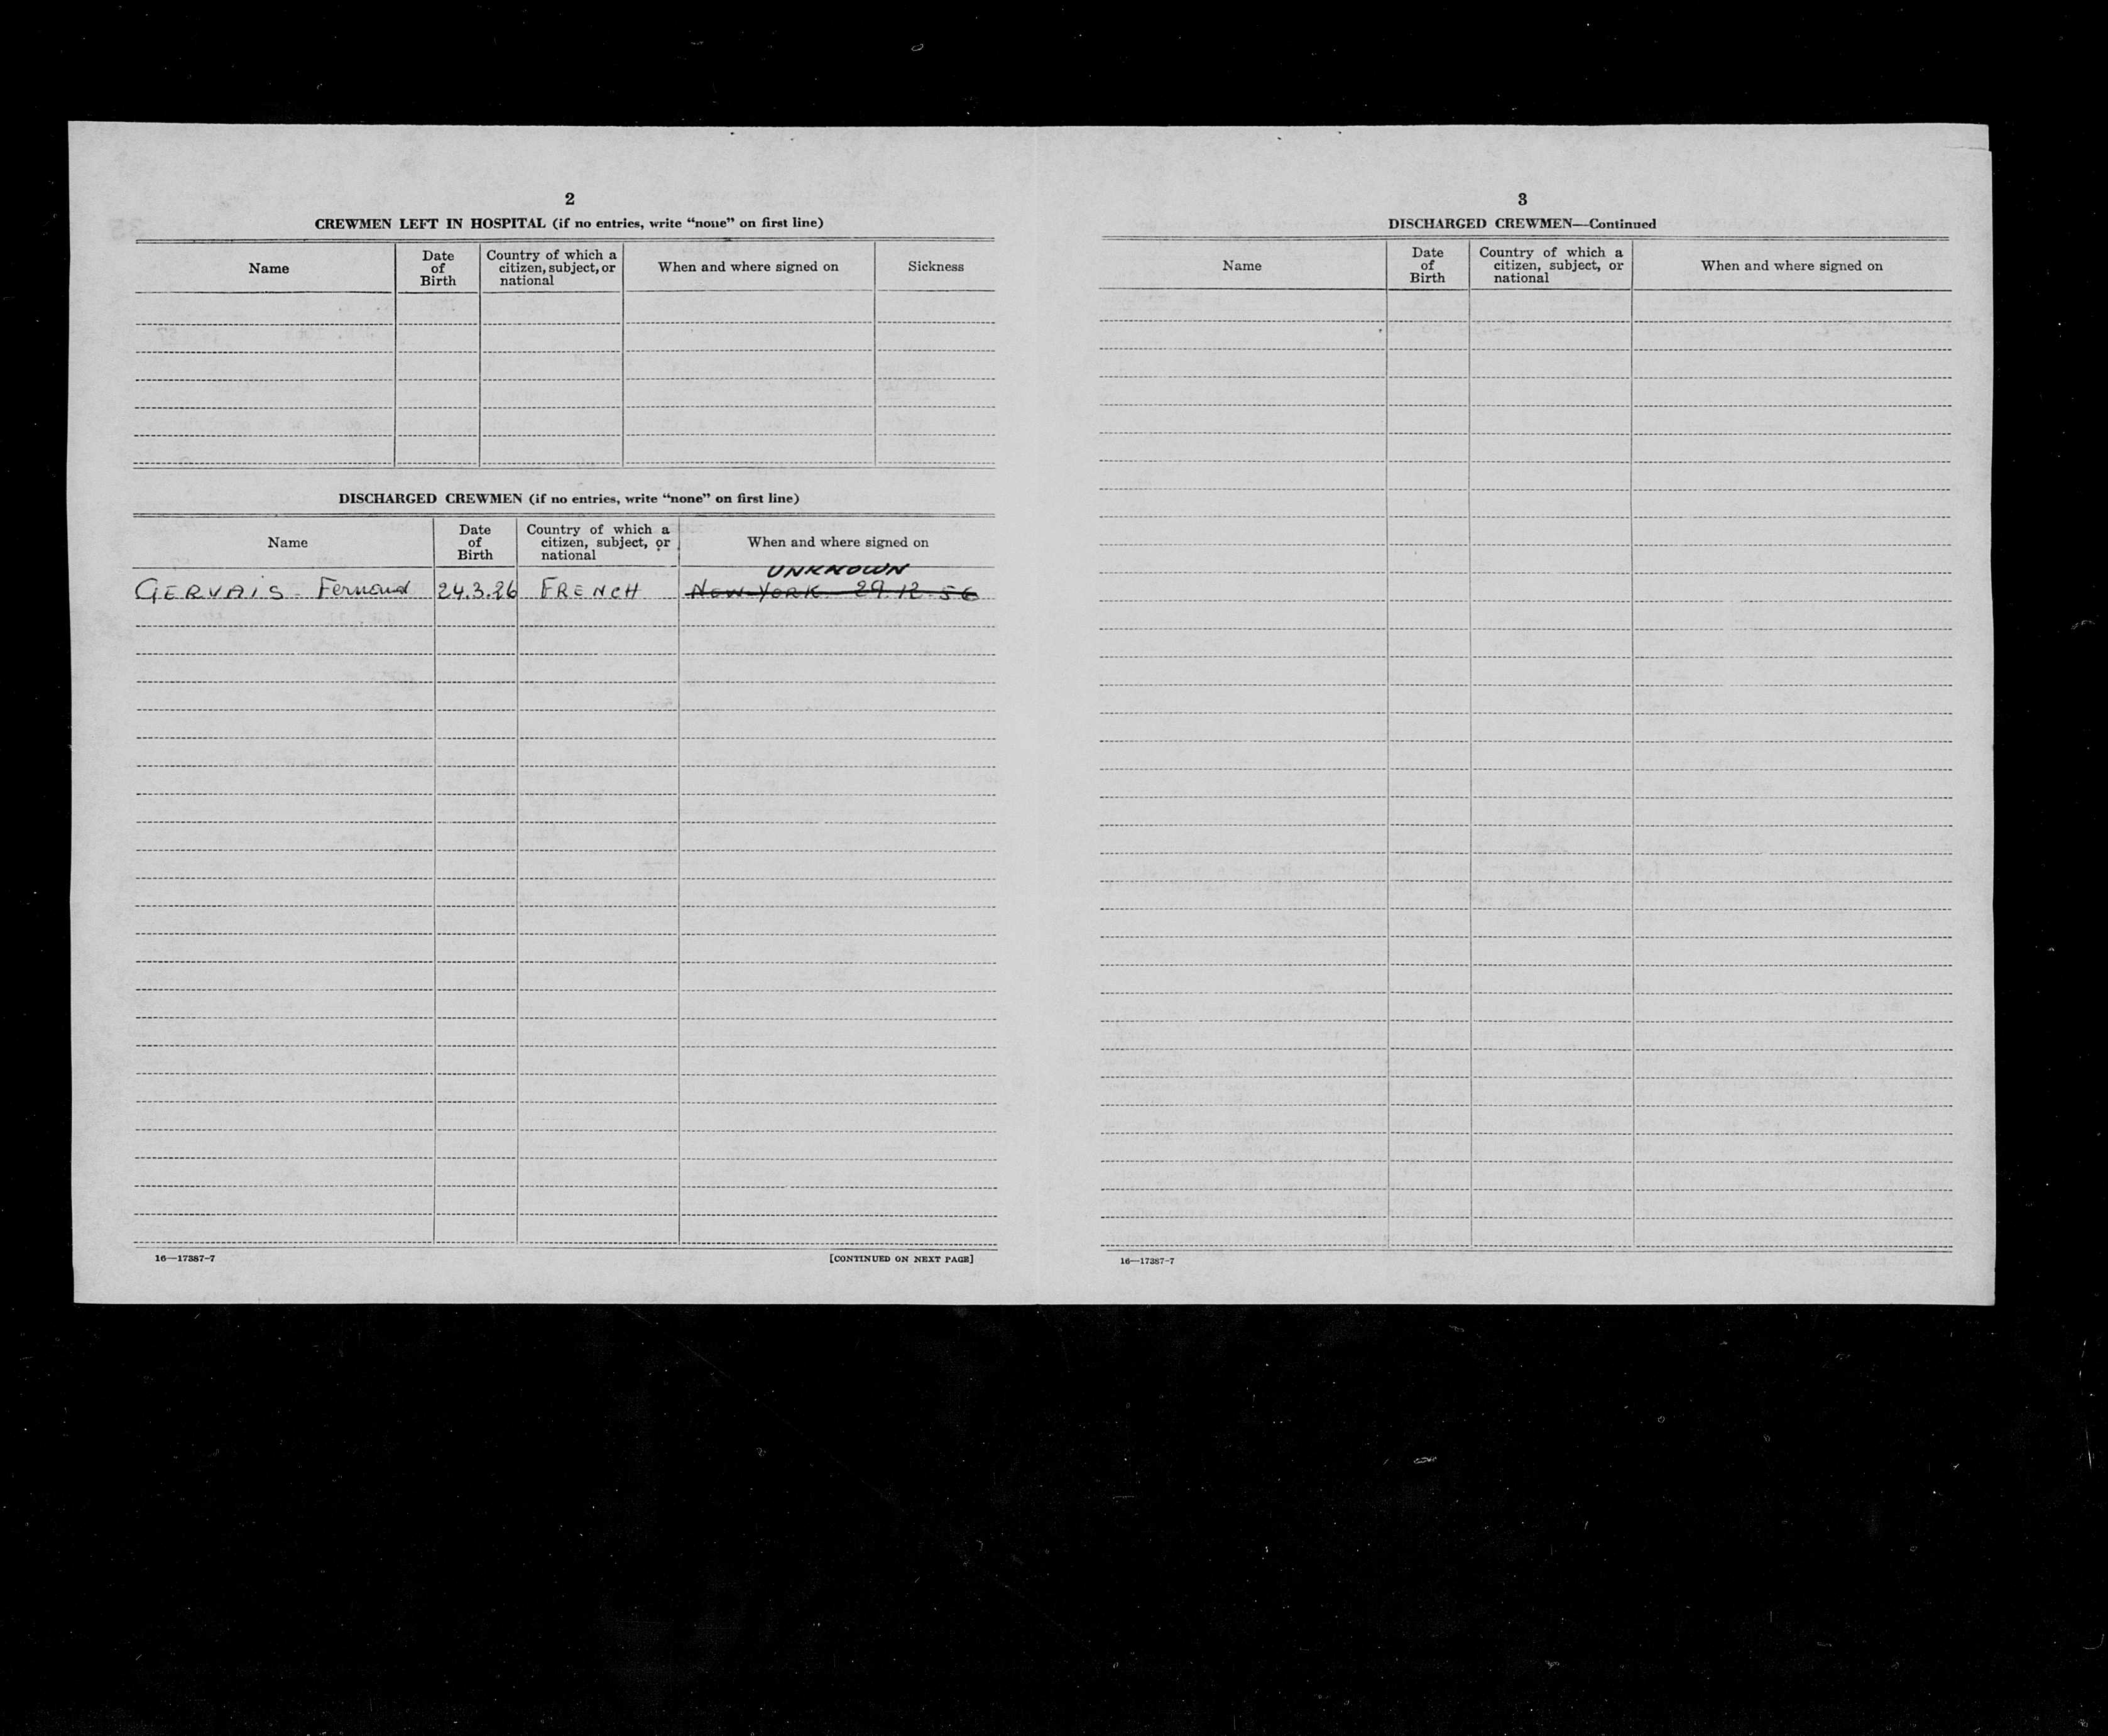 2
CREWMEN LEFT IN HOSPITAL (if no entries, write “none” on first line)
Name
Date of Birth
Country of which a citizen, subject, or national
When and where signed on
Sickness
DISCHARGED CREWMEN (if no entries, write “none” on first line)
Name
Date of Birth
Country of which a citizen, subject, or national
When and where signed on
UNKNOWN
GERVAIS - Fernand 24.3.26 FRENCH New-York 29.12.56
16—17387-7
[CONTINUED ON NEXT PAGE]
3
DISCHARGED CREWMEN—Continued
Name
Date of Birth
Country of which a citizen, subject, or national
When and where signed on
16—17387-7